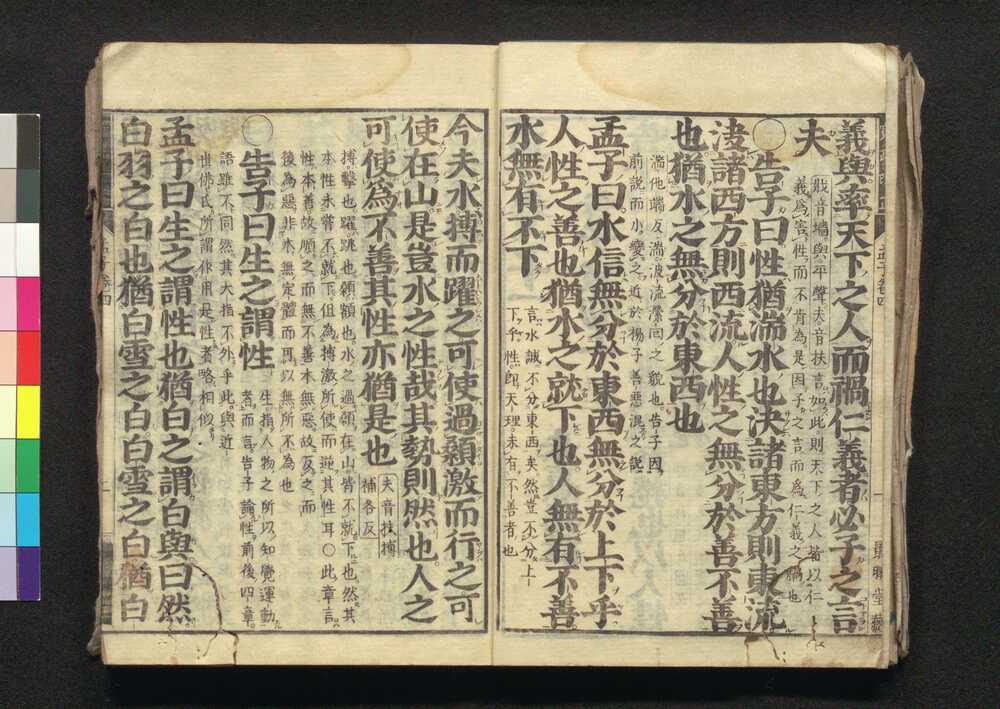 義與率天下之人而禍仁義者必子之言
夫
戕音墻與平聲夫音扶言如此則天下之人皆以仁
義爲害性而不肯為是因子之言而爲仁義之禍也
○告子曰性猶湍水也決諸東方則東流
決諸西方則西流人性之無分於善不善
也猶水之無分於東西也
湍他端反湍波流瀠回之貌也告子因
前說而小變之近於揚子善惡混之說
孟子曰水信無分於東西無分於上下乎
人性之善也猶水之就下也人無有不善
水無有不下
言水誠不分東西矣然豈不分上
下乎性即天理未有不善者也
今夫水搏而躍之可使過顙激而行之可
使在山是豈水之性哉其勢則然也人之
可使爲不善其性亦猶是也
夫音扶搏
補各反
搏擊也躍跳也顙額也水之過顙在山皆不就下也然其
本性未嘗不就下但為搏激所使而逆其性耳○此章言
性本善故順之而無不善本無惡故反之而
後為惡非本無定體而可以無所不為也
○告子曰生之謂性
生指人物之所以知覺運動
者而言告子論性前後四章
語雖不同然其大指不外乎此與近
世佛氏所謂作用是性者略相似
孟子曰生之謂性也猶白之謂白與曰然
白羽之白也猶白雪之白白雪之白猶白